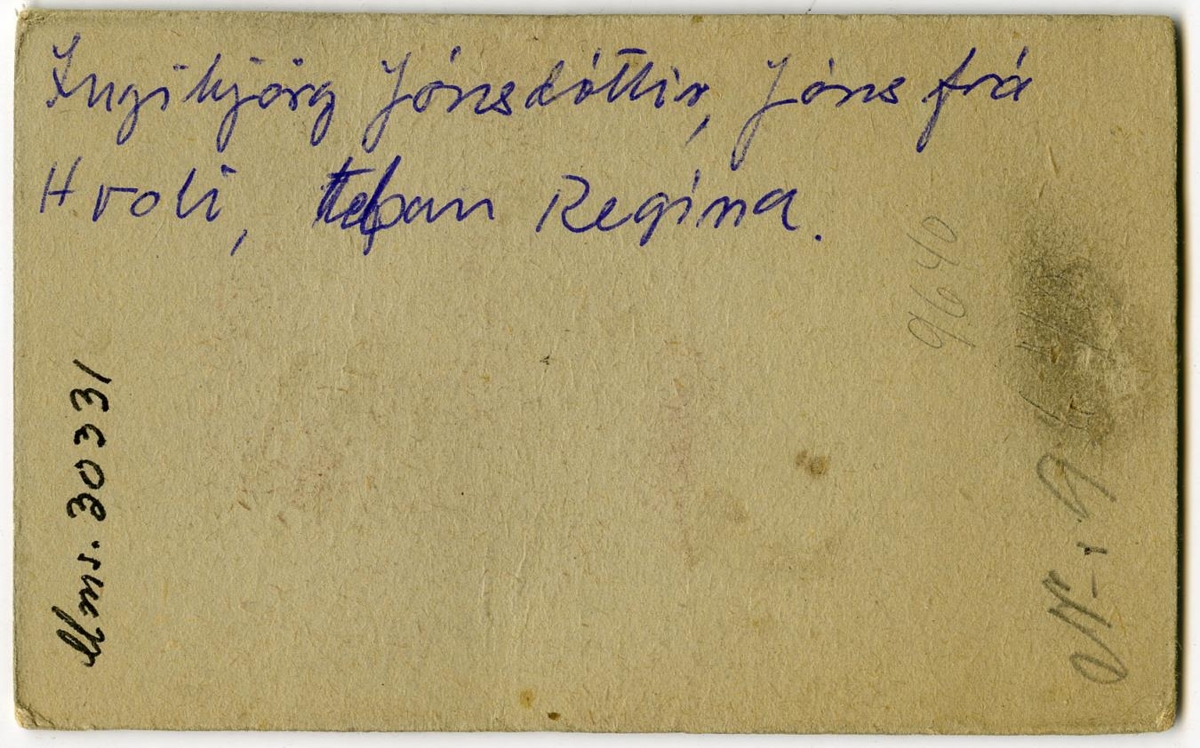 Ingibjörg Jónsdóttir, Jóns frá
Hvoli, Regina.
Mms. 30331
9640